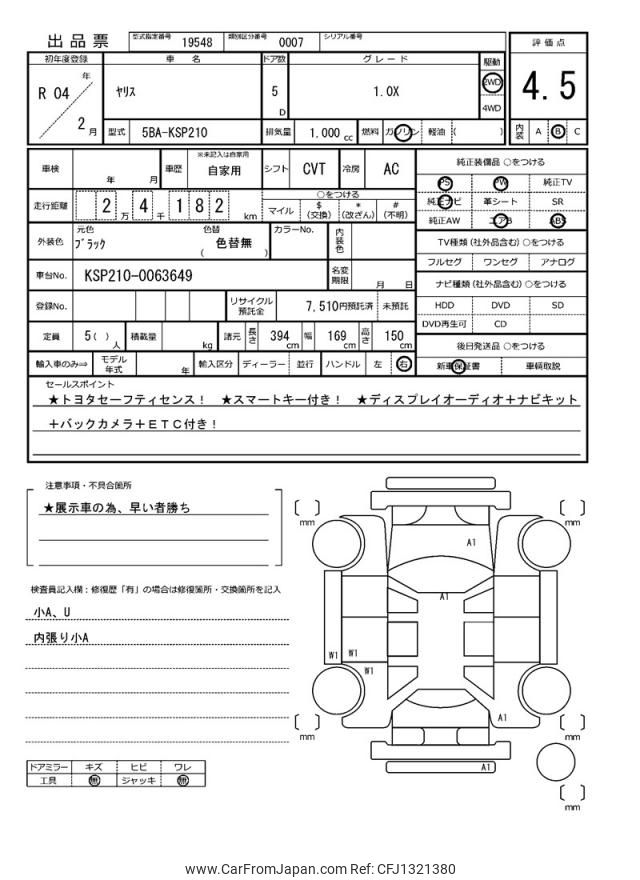 出品票
型式指定番号 19548 類別区分番号 0007 シリアル番号
評価点
初年度登録 車 名 ドア数 グレード 駆動
R 04 年 2 月
ヤリス 5 D 1.0X
2WD
4WD
4.5
型式 5BA-KSP210 排気量 1.000 cc 燃料 ガソリン 軽油 ( )
内装 A B C
車検 年 月 車歴 ※未記入は自家用 自家用 シフト CVT 冷房 AC
純正装備品 ○をつける
PS PW 純正TV
走行距離 2 万 4 千 1 8 2 km
○をつける
マイル $(交換) *(改ざん) #(不明)
純正ナビ 革シート SR
純正AW エアB ABS
外装色 元色 ブラック 色替 色替無 ( ) カラーNo. 内装色
TV種類(社外品含む)○をつける
フルセグ ワンセグ アナログ
車台No. KSP210-0063649 名変期限 月 日
ナビ種類(社外品含む)○をつける
HDD DVD SD
登録No. リサイクル預託金 7,510円預託済 未預託
DVD再生可 CD
定員 5( ) 人 積載量 kg 諸元 長さ 394 cm 幅 169 cm 高さ 150 cm
後日発送品 ○をつける
輸入車のみ⇒ モデル年式 年 輸入区分 ディーラー 並行 ハンドル 左 右
新車保証書 車輌取説
セールスポイント
★トヨタセーフティセンス! ★スマートキー付き! ★ディスプレイオーディオ+ナビキット
+バックカメラ+ETC付き!
注意事項・不具合箇所
★展示車の為、早い者勝ち
検査員記入欄:修復歴「有」の場合は修復箇所・交換箇所を記入
小A、U
内張り小A
mm
mm
A1
A1
W1
W1
W1
A1
mm
mm
A1
mm
ドアミラー キズ ヒビ ワレ
工具 無 ジャッキ 無
www.CarFromJapan.com Ref: CFJ1321380